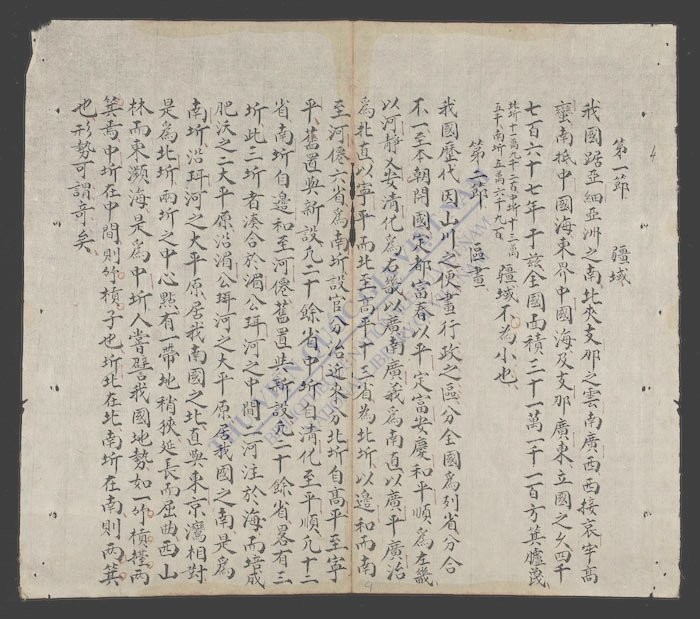 第一節 疆域
我國踞亞細亞洲之南北夾支那之雲南廣西西接哀牢高
蠻南抵中國海東界中國海及支那廣東立國之久四千
七百六十七年于茲全國面積三十一萬一千一百方箕臚蔑
北圻十一萬九千二百中圻十三萬
五千南圻五萬六千九百 疆域不為小也
第二節 區畫
我國歷代因山川之便畫行政之區分全國為列省分合
不一至本朝開國定都富春以平定富安慶和平順為左畿
以河靜乂安清化為右畿以廣南廣義為南直以廣平廣治
為北直以寧平而北至高平十省為北圻以邊和而南
至河僊六省為南圻設官分治近來分北圻自高平至寧
平舊置與新設凡二十餘省中圻自清化至平順凡十二
省南圻自邊和至河僊舊置與新設凡二十餘省畧有三
圻此三圻者湊合於湄公珥河之中間二河注於海而培成
肥沃之二大平原沿湄公珥河之大平原居我國之南是為
南圻沿珥河之大平原居我南國之北直與東京灣相對
是為北圻兩圻之中心點有一帶地稍狹延長而屈曲西山
林而東瀕海是為中圻人嘗譬我國地勢如一竹槓擔兩
箕焉中圻在中間則竹槓子也圻北在北南圻在南則兩箕
也形勢可謂奇矣
THƯ VIỆN QUỐC GIA VIỆT NAM